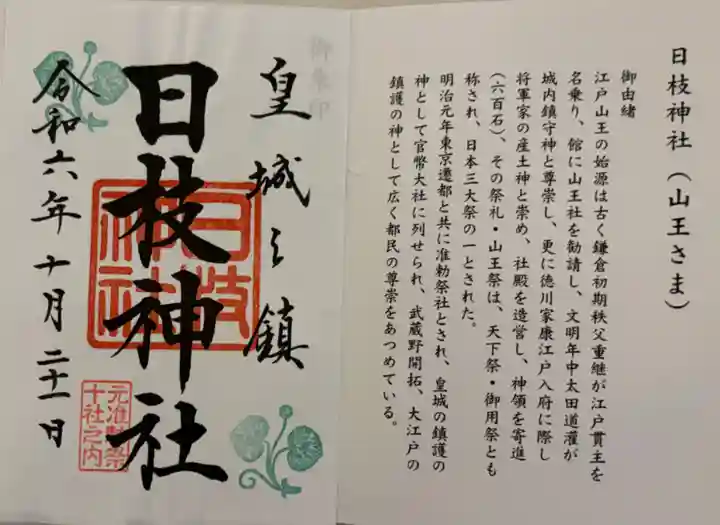 日枝神社(山王さま)
御由緒
江戸山王の始源は古く鎌倉初期秩父重継が江戸貫主を
名乗り、館に山王社を勧請し、文明年中太田道灌が
城内鎮守神と尊崇し、更に徳川家康江戸入府に際し
将軍家の産土神と崇め、社殿を造営し、神領を寄進
(六百石)、その祭礼・山王祭は、天下祭・御用祭とも
称され、日本三大祭の一とされた。
明治元年東京遷都と共に准勅祭社とされ、皇城の鎮護の
神として官幣大社に列せられ、武蔵野開拓、大江戸の
鎮護の神として広く都民の尊崇をあつめている。
皇城之鎮
日枝神社
日枝
神社
元准勅祭
十社之内
令和六年十月二十一日